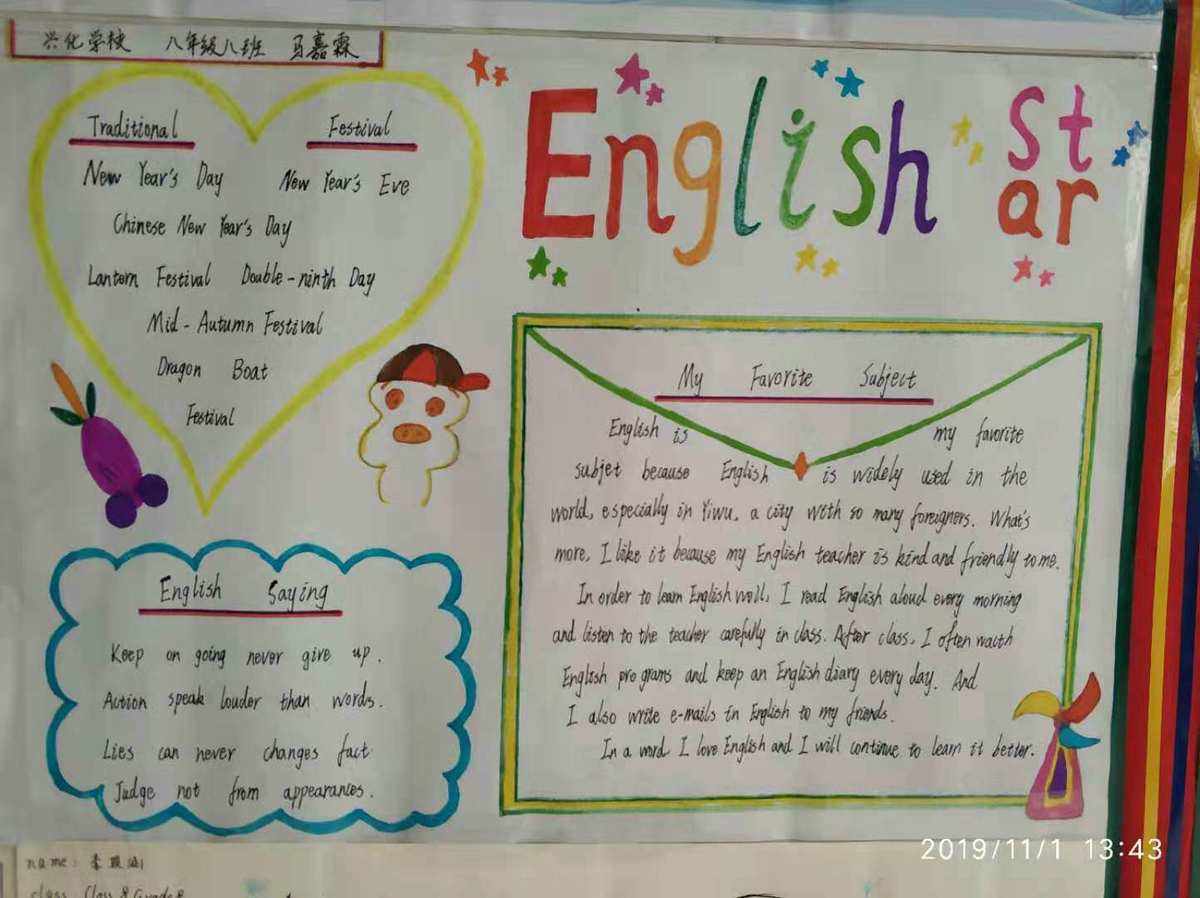 兴化学校 八年级八班 马嘉霖
English
St
ar
Traditional Festival
New Year's Day New Year's Eve
Chinese New Year's Day
Lantern Festival Double-ninth Day
Mid-Autumn Festival
Dragon Boat
Festival
English Saying
Keep on going never give up.
Action speak louder than words.
Lies can never changes fact
Judge not from appearances.
My Favorite Subject
English is my favorite
subjet because English is widely used in the
world, especially in Yiwu, a city wtth so many foreigners. What's
more, I like it because my English teacher is kind and friendly to me.
In order to learn English well, I read English aloud every morning
and listen to the teacher carefully in class. After class, I often wacth
English programs and keep an English diary every day. And
I also write e-mails in English to my friends.
In a word I love English and I will continue to learn it better.
2019/11/1 13:43
name: 李
class: Class 8 Grade 8